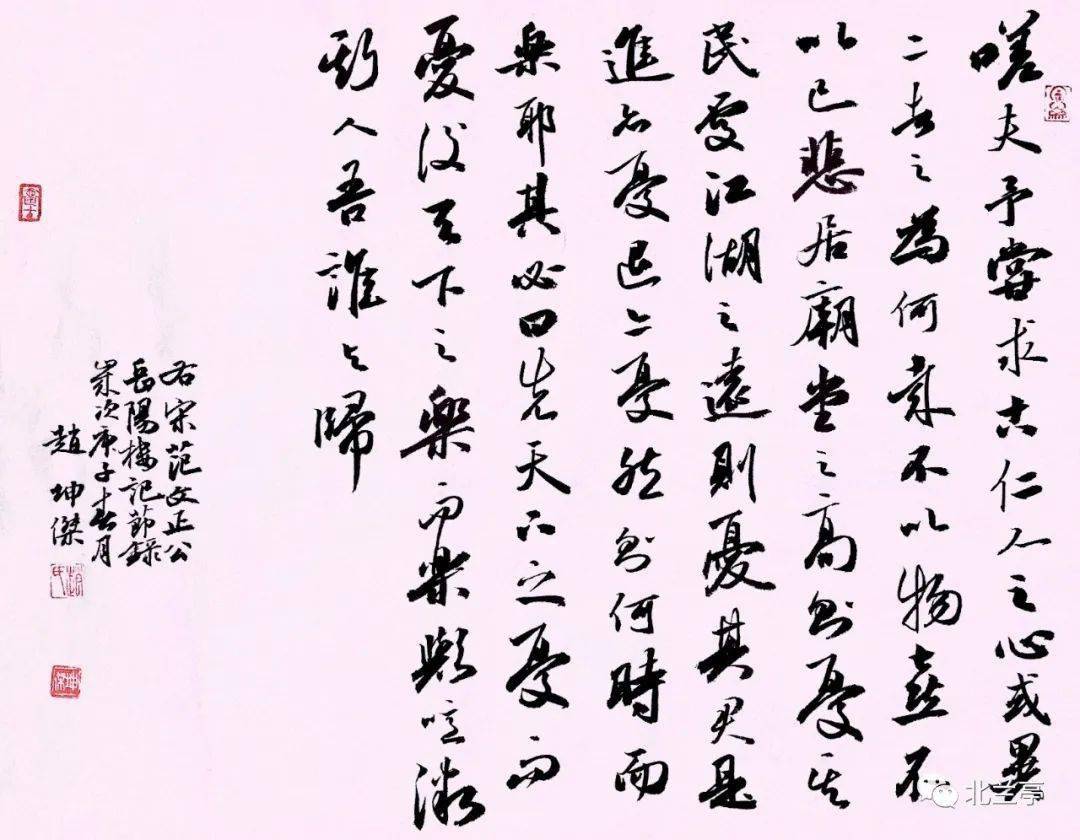 嗟夫予嘗求古仁人之心或異
二者之為何哉不以物喜不
以己悲居廟堂之高則憂其
民處江湖之遠則憂其君是
進亦憂退亦憂然則何時而
樂耶其必曰先天下之憂而
憂後天下之樂而樂歟噫微
斯人吾誰與歸
右宋范文正公
岳陽樓記節錄
歲次庚子春月
趙坤傑
趙氏
北兰亭